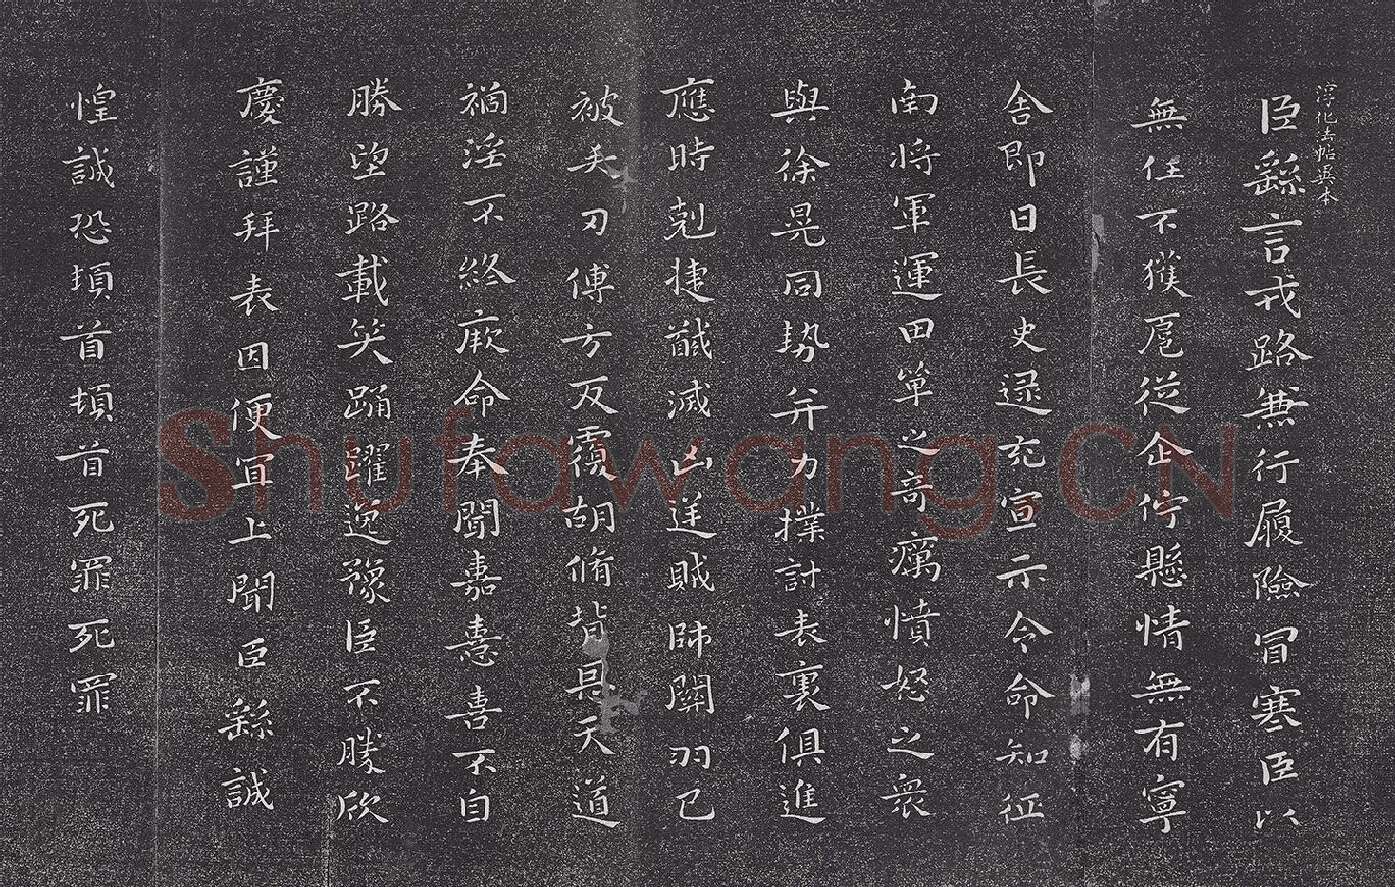 淳化古帖吳本
臣繇言戎路無行履險冒寒臣以
無任不獲扈從企佇懸情無有寧
舍即日長史逯充宣示令命知征
南將軍運田單之奇癘憤怒之衆
與徐晃同勢并力撲討表裏俱進
應時剋捷馘滅凶逆賊帥關羽已
被矢刃傅方反覆胡脩背恩天道
禍淫不終厥命奉聞嘉憙喜不自
勝望路載笑踊躍逸豫臣不勝欣
慶謹拜表因便宜上聞臣繇誠
惶誠恐頓首頓首死罪死罪
Shufawang.CN